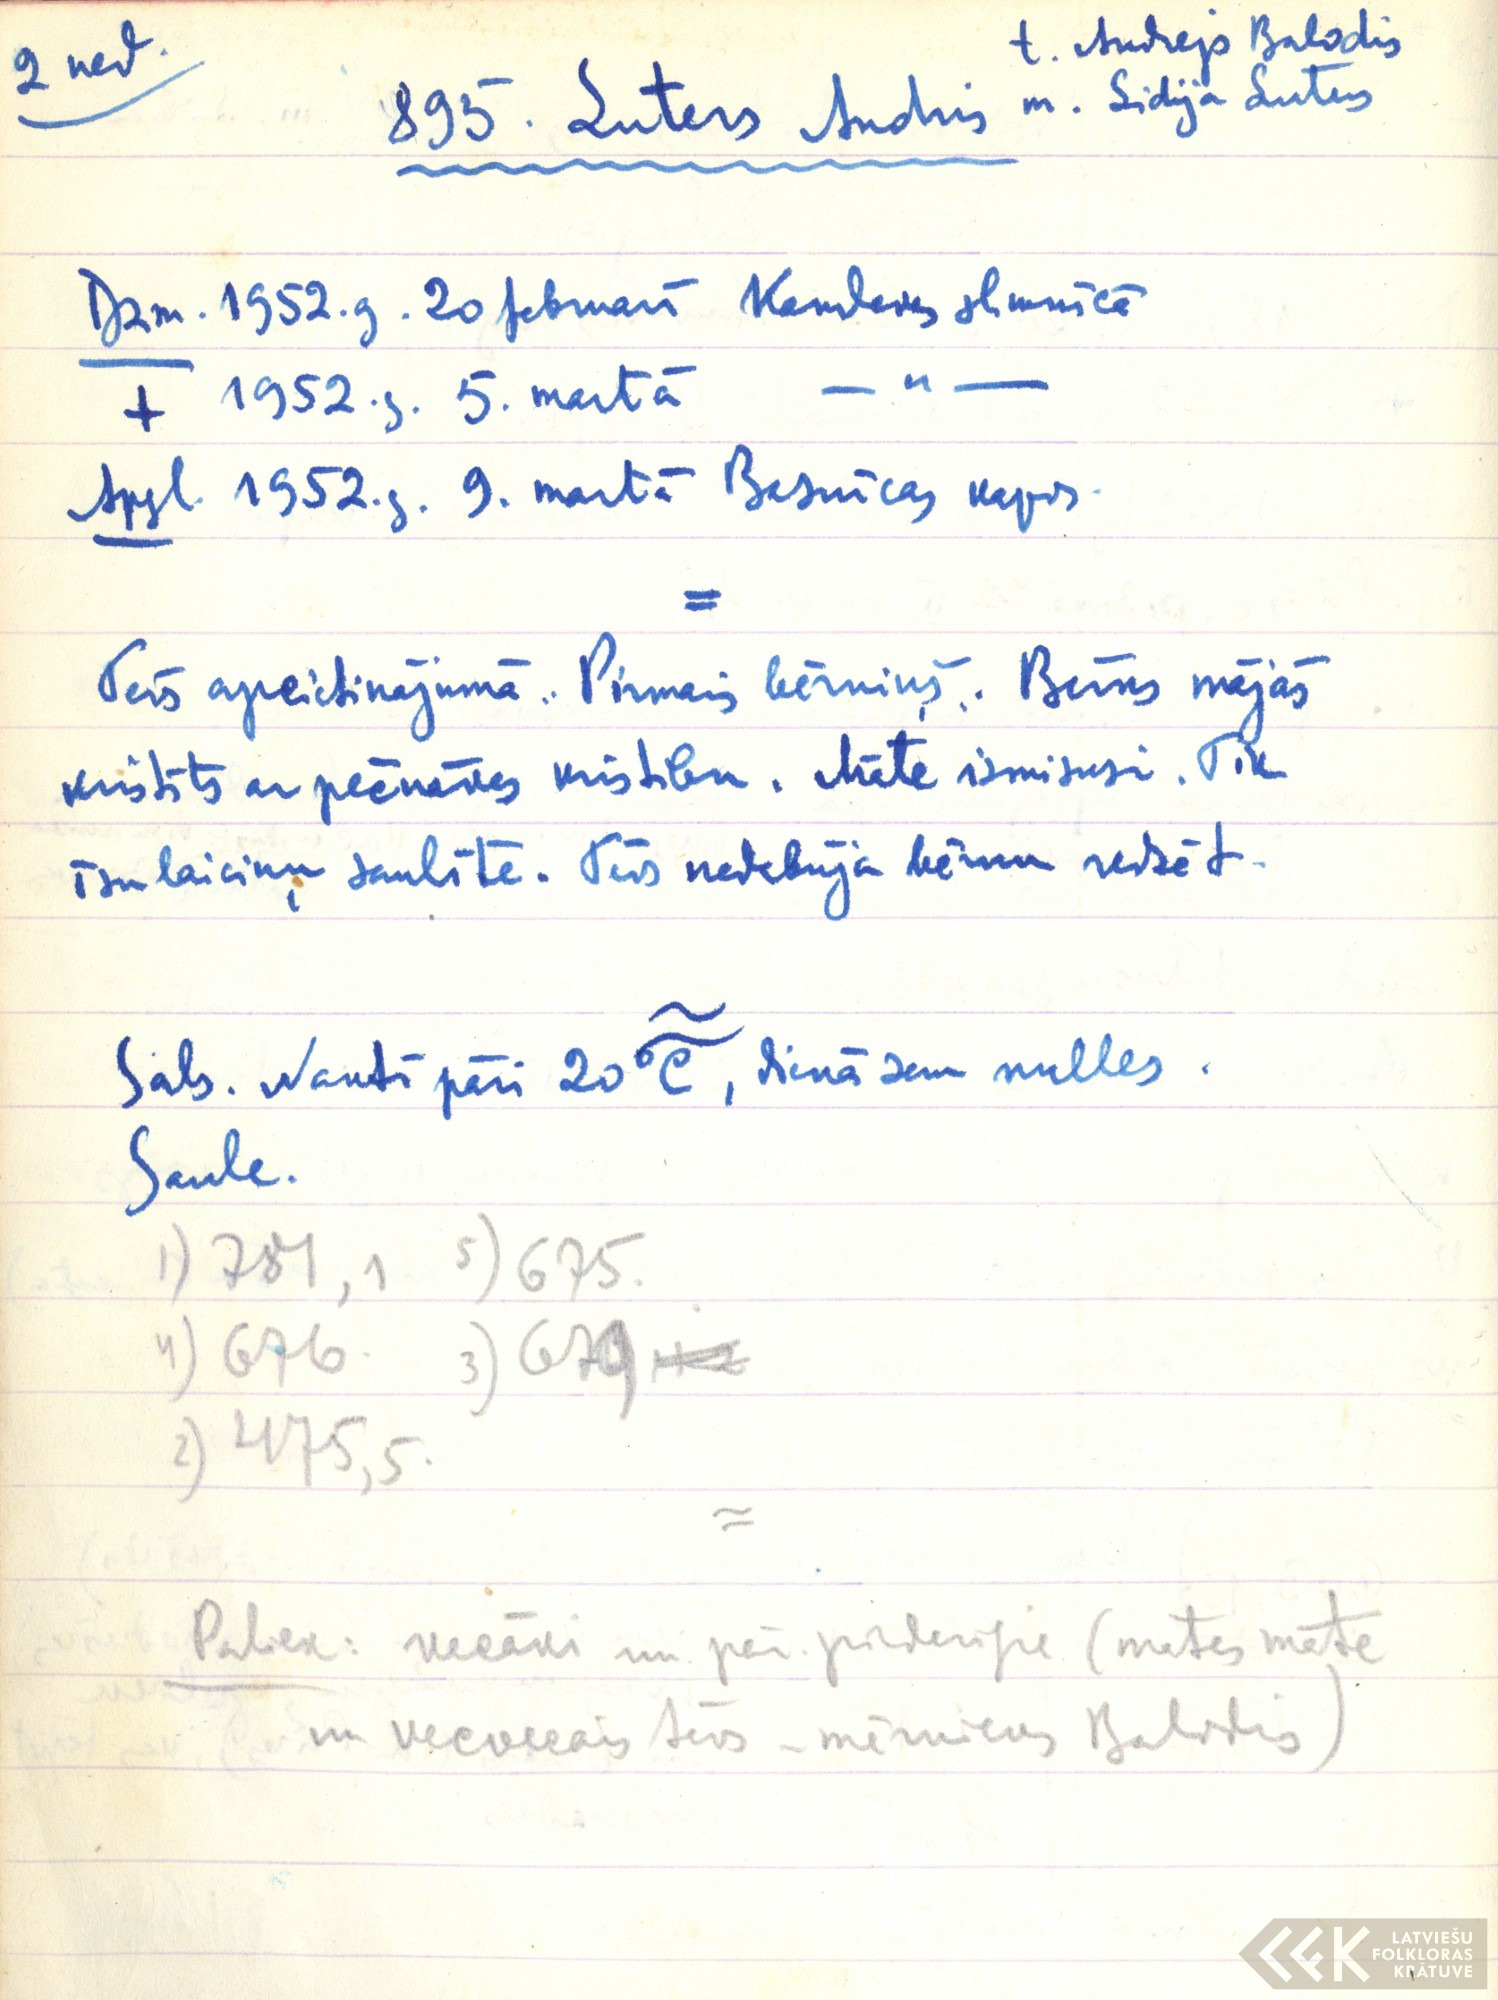 2 ned.
t. Andrejs Balodis
895. Luters Andris m. Lidija Luters
Dzm. 1952.g. 20 februarī Kandavas slimnīcā
+ 1952.g. 5. martā — " —
Apgl. 1952.g. 9. martā Baznīcas kapos.
=
Tēvs apcietinājumā. Pirmais bērniņš. Bērns mājās
kristīts ar kristību. Māte izmisusi. Tik
īsu laiciņu saulītē. Tēvs nedabūja bērnu redzēt.
Sals. Naktī pāri 20°C, dienā zem nulles.
Saule.
1) 781,1 5) 675.
4) 676. 3) 679
2) 475,5.
≈
Paliek: vecāki un pār. piederīgie (mātes māte
un vecvecais tēvs - mērnieks Balodis)
LATVIEŠU
FOLKLORAS
KRĀTUVE